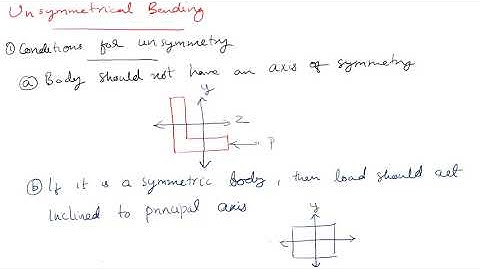 Unsymmetrical Bending
① Conditions for unsymmetry
ⓐ Body should not have an axis of symmetry
y
Z
P
ⓑ If it is a symmetric body, then load should act
inclined to principal axis
y